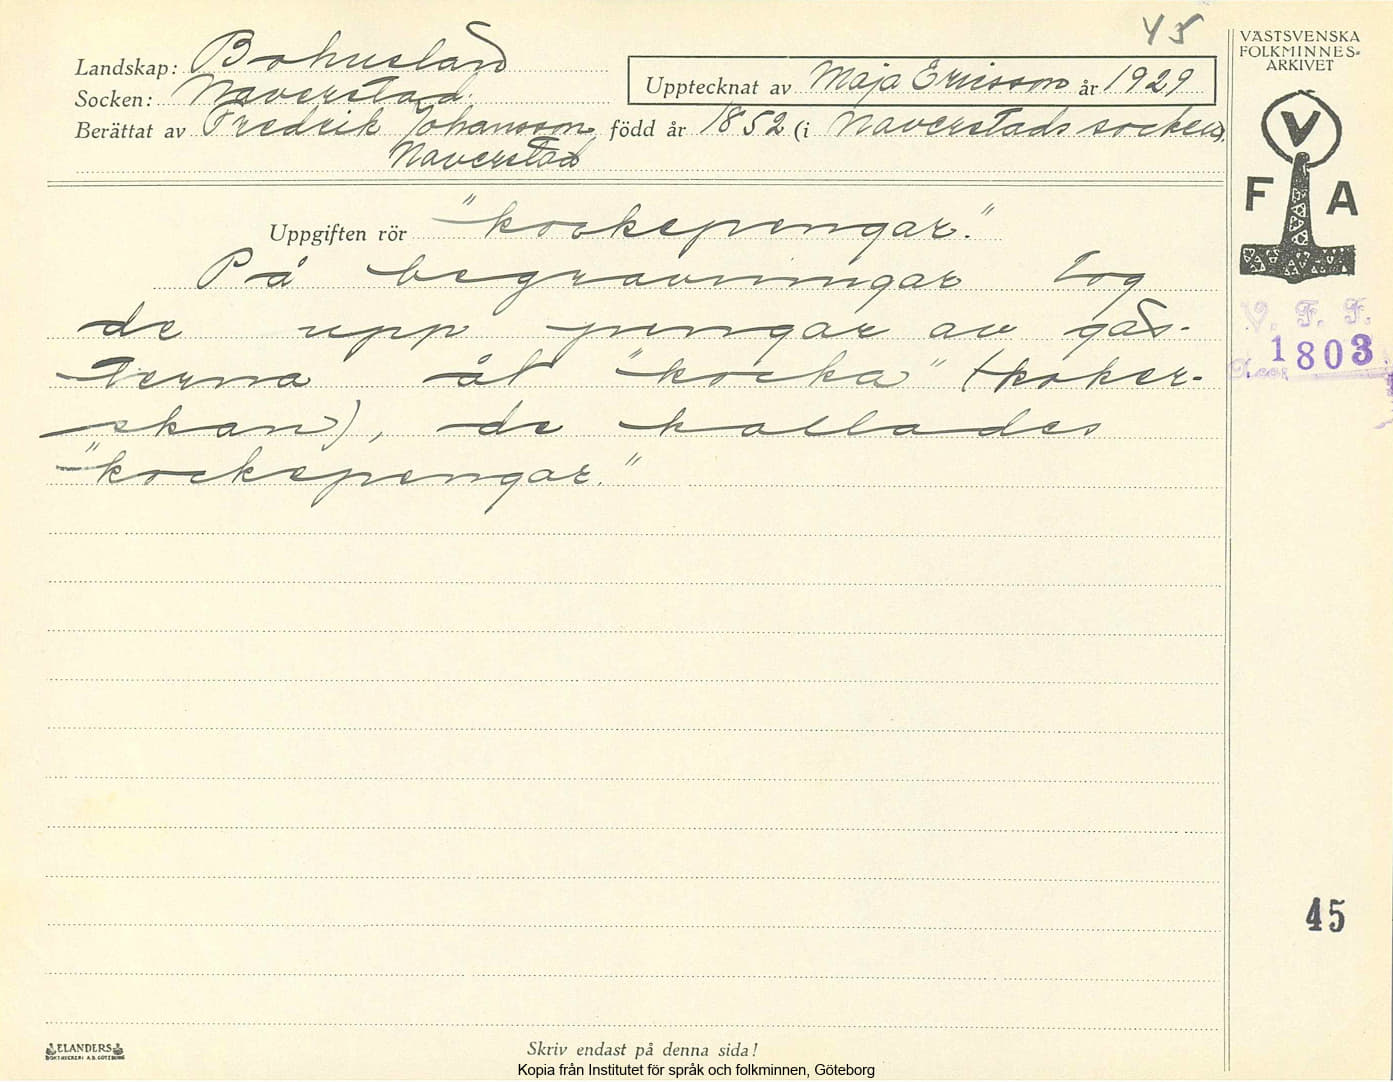 45
Landskap: Bohuslän
Socken: Naverstad
Upptecknat av Maja Ericsson år 1929
Berättat av Fredrik Johansson, född år 1852 (i Naverstads socken).
Naverstad
VÄSTSVENSKA
FOLKMINNES-
ARKIVET
V
F A
Uppgiften rör "kockepengar."
På begravningar tog
de upp pengar av gäs-
terna åt "kocka" (koker-
skan), de kallades
"kockepengar."
V. F. F.
Acc. 1803
45
ELANDERS
BOKTRYCKERI A.B. GÖTEBORG
Skriv endast på denna sida!
Kopia från Institutet för språk och folkminnen, Göteborg